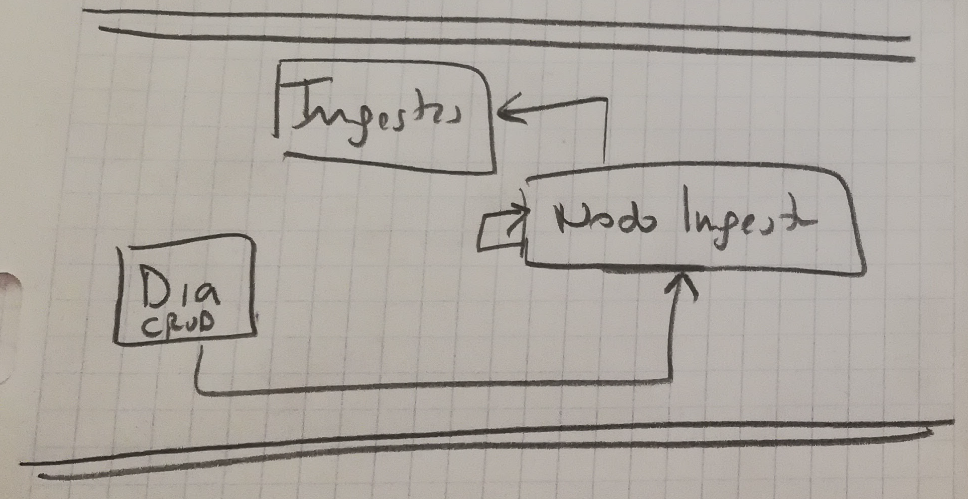 Ingesta
Nodo Ingesta
Dia
CRUD